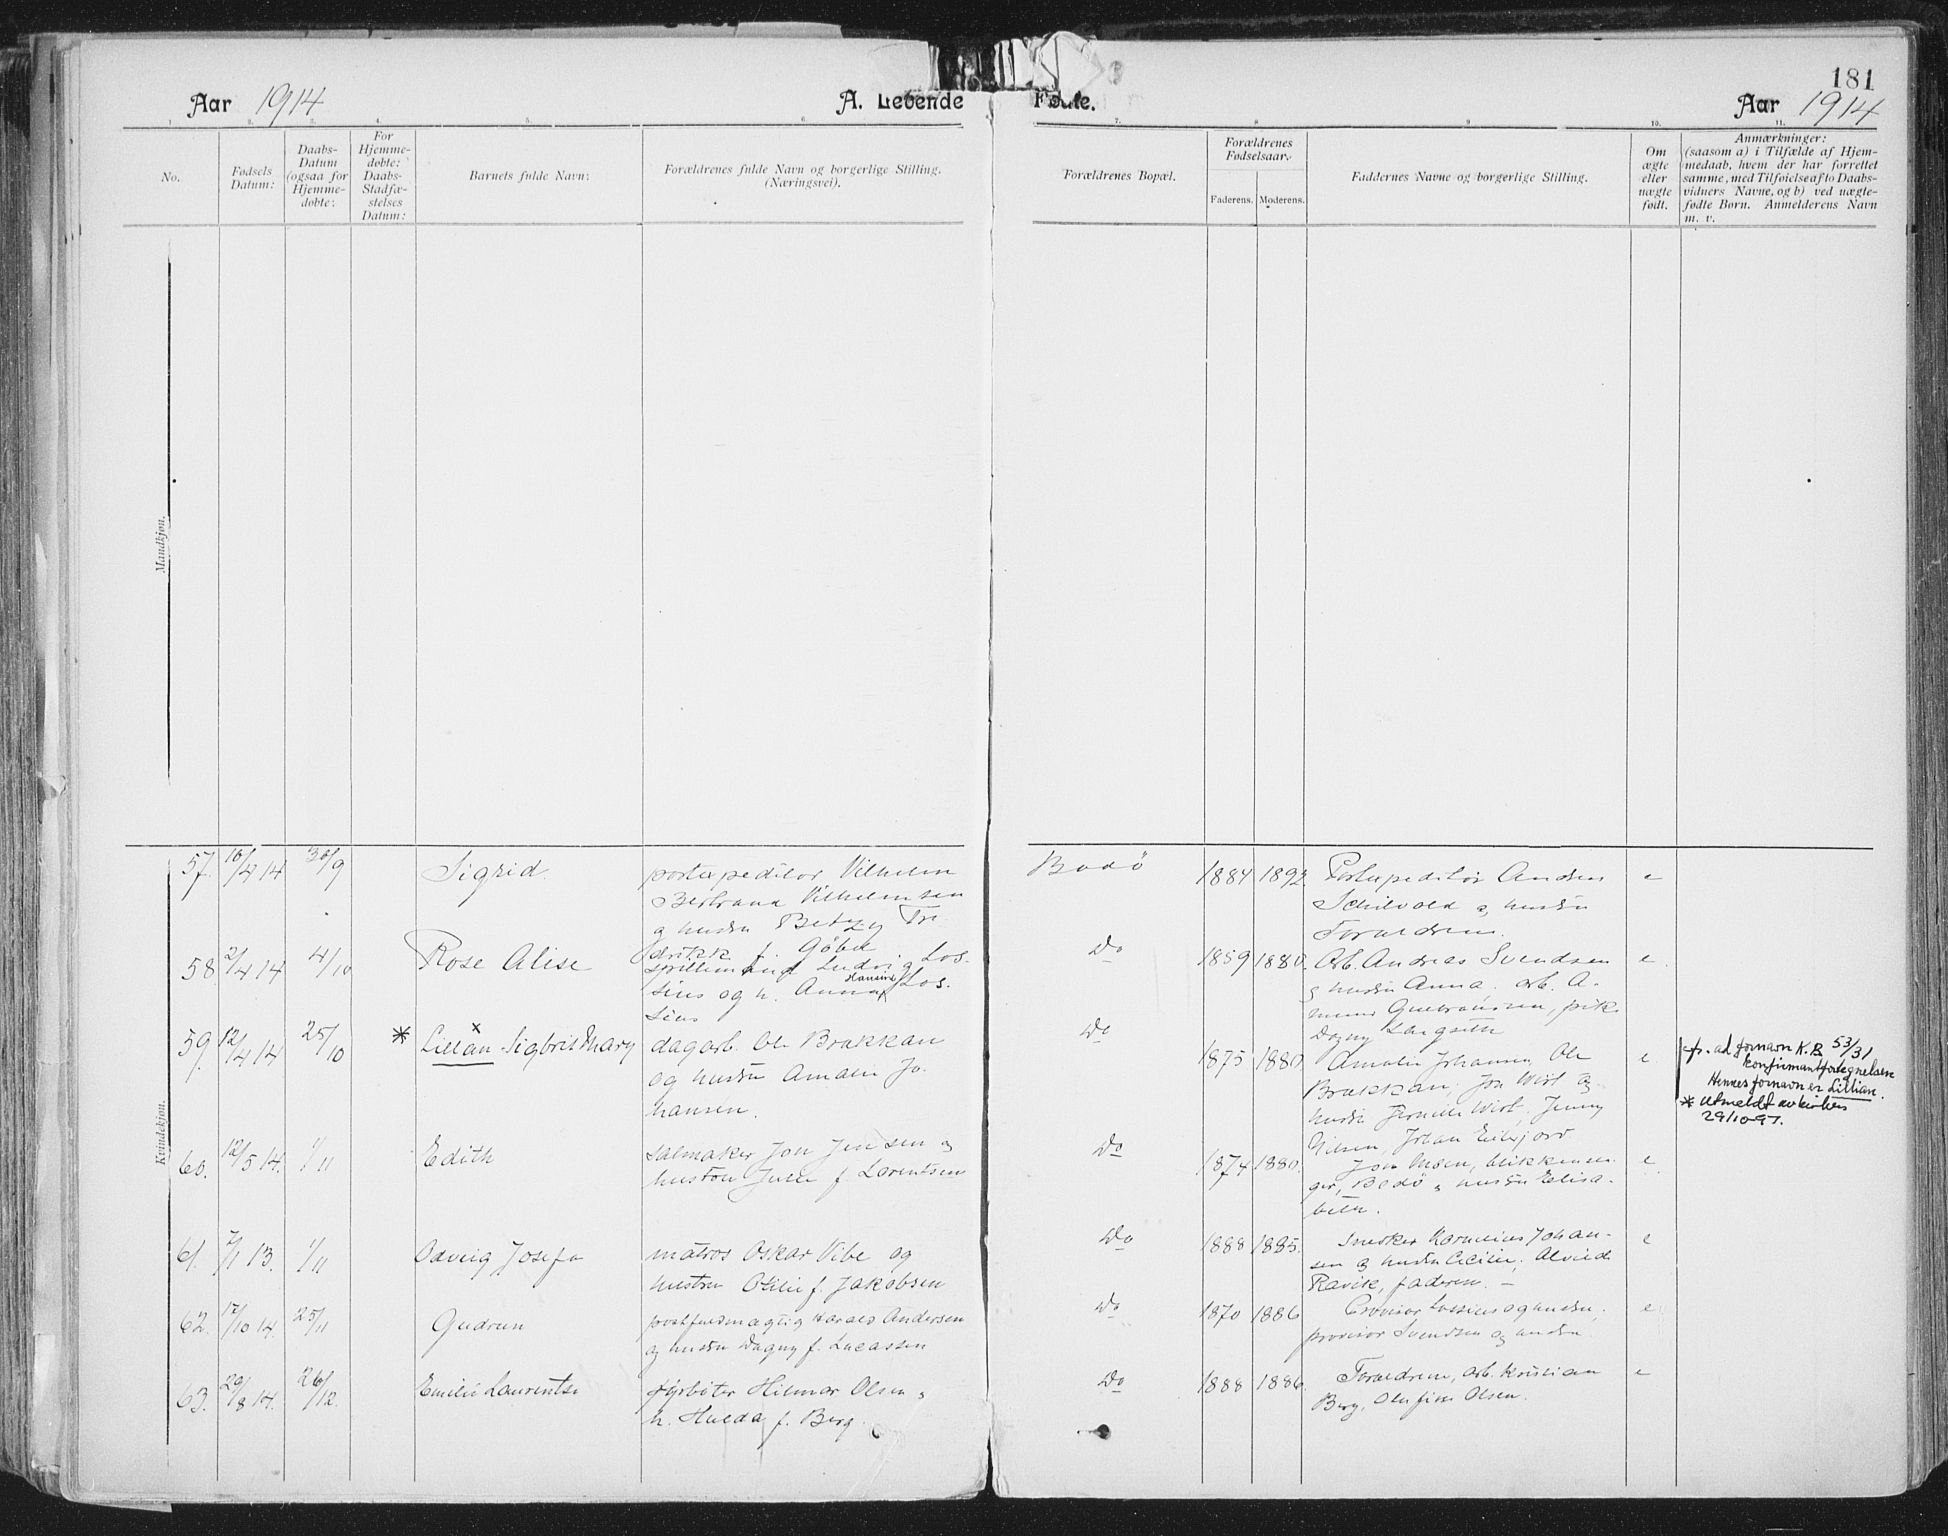 181
Aar 1914
A. Levende Fødte.
Aar 1914
1. 2. 3. 4. 5. 6. 7. 8. 9. 10. 11.
No.
Fødsels
Datum:
Daabs-
Datum
(ogsaa for
Hjemme-
døbte:
For
Hjemme-
døbte:
Daabs-
Stadfæ-
stelses
Datum:
Barnets fulde Navn:
Forældrenes fulde Navn og borgerlige Stilling.
(Næringsvei).
Forældrenes Bopæl.
Forældrenes
Fødselsaar:
Faderens. Moderens.
Faddernes Navne og borgerlige Stilling.
Om
ægte
eller
uægte
født.
Anmærkninger:
(saasom a) i Tilfælde af Hjem-
medaab, hvem der har forrettet
samme, med Tilføielse af to Daabs-
vidners Navne, og b) ved uægte-
fødte Børn. Anmelderens Navn
m. v.
Mandkjøn.
Kvindekjøn.
57. 10/4 14 30/9 Sigrid.
postexpeditør Vilhelm
Bertrand Vilhelmsen
og hustru Betzy Fre
drikk f.
Bodø 1884 1892.
Postexpeditør Anders
Schilvold og hustru
Forældrene.
e
58. 2/4 14 4/10 Rose Alise
Ludvig Los-
sius og h. Anna Hansine Los-
sius
Do 1859 1880.
Arb. Andreas Svendsen
og hustru Anna. arb. A-
pike
Dagny Langseth
e.
59. 12/4 14 25/10 * Lillan x Sigbrit Mary
dagarb. Ole Brakkan
og hustru Amalie Jo-
hansen.
Do 1875 1880
Amalie Johansen, Ole
Brakkan, Jon Wist og
hustru Wist, Jenny
Nilsen, Johan
e
fr. ad fornavn K.B 53/31
konfirmantfortegnelsen
Hennes fornavn er Lillian.
* Utmeldt av kirken
29/10-97.
60. 12/5 14. 1/11 Edith
salmaker Jon Jensen og
hustru Julie f. Lorentsen
Do 1874 1880.
Jon Olsen, blikkensla
ger, Bodø og hustru Elisa-
beth.
e
61. 7/1 13. 1/11 Odveig Josefa
matros Oskar Vibe og
hustru Otilie f. Jakobsen
Do 1888 1885.
Snekker Kornelius Johan-
sen og hustru Cecilie, Alvild
Ravik, faderen. –
e
62. 17/10 14. 25/11 Gudrun
postfuldmægtig Harald Andersen
og hustru Dagny f. Lucassen
Do 1870 1886
Provisor Lossius og hustru,
provisor Svendsen og hustru
e
63. 29/8 14. 26/12. Emilie Laurentse
fyrbøter Hilmar Olsen og
h. Hulda f. Berg.
Do 1888 1886.
Forældrene, arb. Kristian
Berg, Olufine Olsen.
e